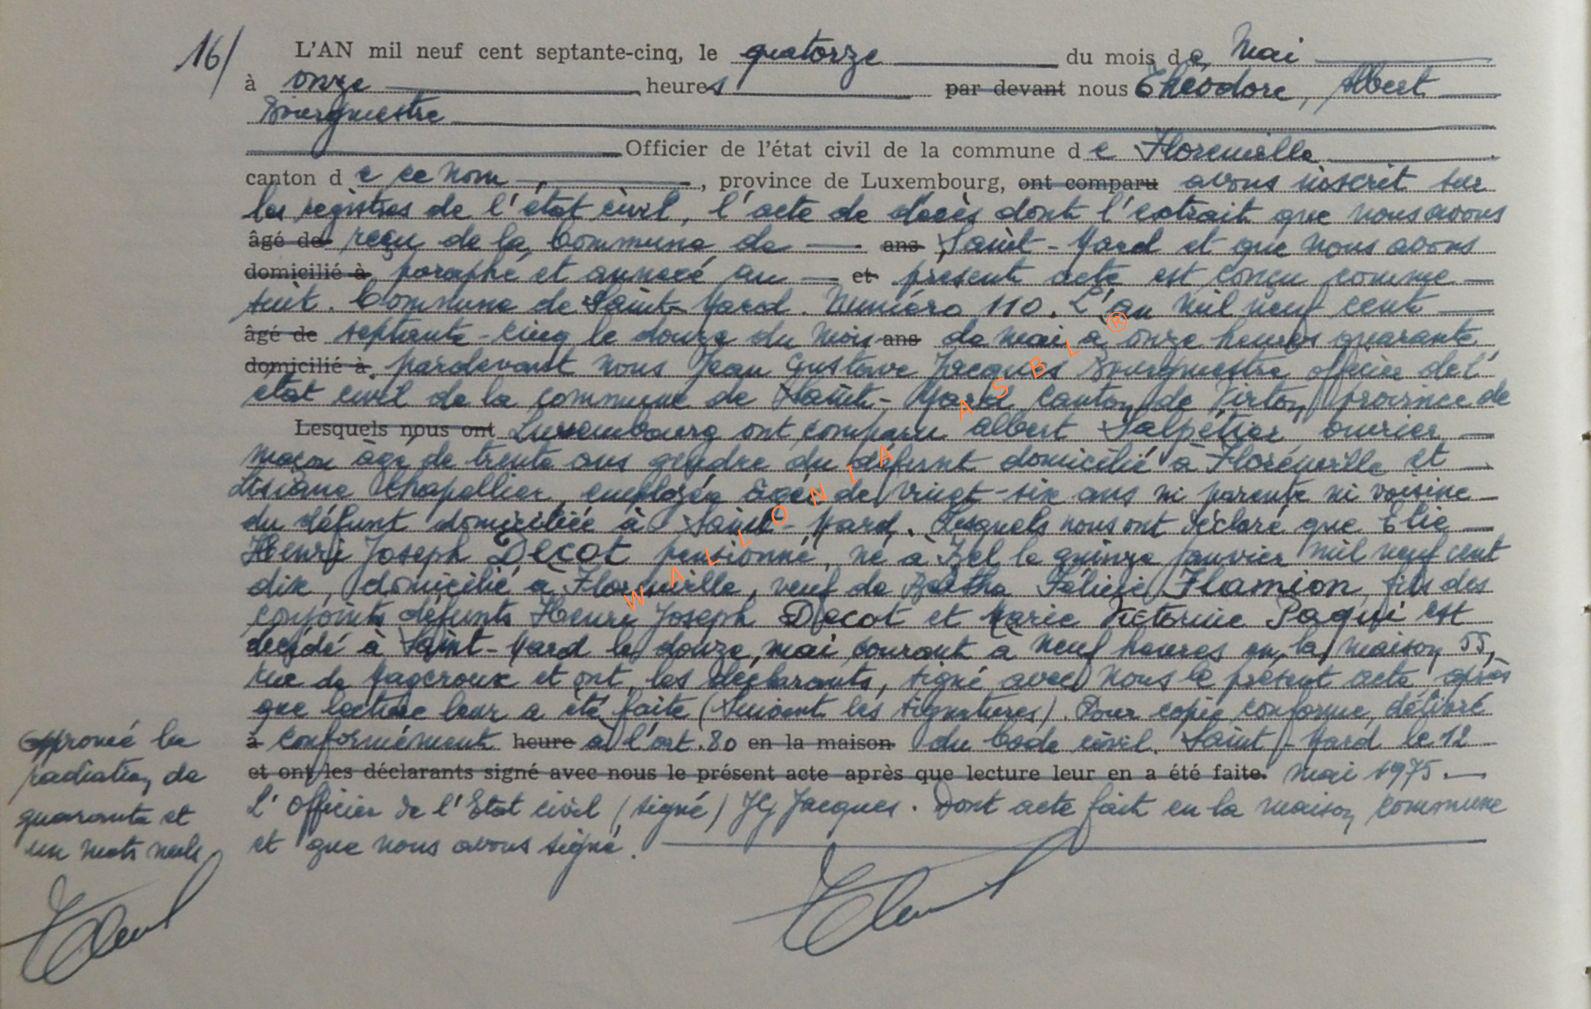 16/ L'AN mil neuf cent septante-cinq, le quatorze du mois de Mai
à onze heures par devant nous Théodore, Albert
Bourgmestre
Officier de l'état civil de la commune de Florenville
canton de ce nom, province de Luxembourg, ont comparu avons inscrit sur
les registres de l'état civil, l'acte de décès dont l'extrait que nous avons
âgé de reçu de la Commune de ans Saint-Mard et que nous avons
domicilié à paraphé et annexé au et présent acte est conçu comme
suit. Commune de Saint-Mard. Numéro 110. L'an mil neuf cent
âgé de septante-cinq le douze du mois ans de mai à onze heures quarante
domicilié à pardevant nous Jean Gustave Jacques Bourgmestre officier de l'
état civil de la commune de Saint-Mard canton de Virton province de
Lesquels nous ont Luxembourg ont comparu Albert Salpétier ouvrier
maçon âgé de trente ans gendre du défunt domicilié à Florenville et
Lisiane Chapellier employée âgée de vingt-six ans ni parente ni voisine
du défunt domiciliée à Saint-Mard. Lesquels nous ont déclaré que Elie
Henri Joseph Decot pensionné, né à Izel le quinze janvier mil neuf cent
dix, domicilié à Florenville, veuf de Bertha Félicie Flamion, fils des
conjoints défunts Henri Joseph Decot et Marie Victorine Paqui est
décédé à Saint-Mard le douze, mai courant à neuf heures en la maison 55,
rue de Mageroux et ont, les déclarants, signé avec nous le présent acte après
que lecture leur a été faite (Suivent les signatures) Pour copie conforme, délivré
à conformément heure à l'art. 80 en la maison du Code civil. Saint-Mard le 12
et ont les déclarants signé avec nous le présent acte après que lecture leur en a été faite. mai 1975.
L'Officier de l'Etat civil (signé) JG Jacques. Dont acte fait en la maison commune
et que nous avons signé.
Approuvé la
radiation de
quarante et
un mots nuls
WALLONIA ASBL ®